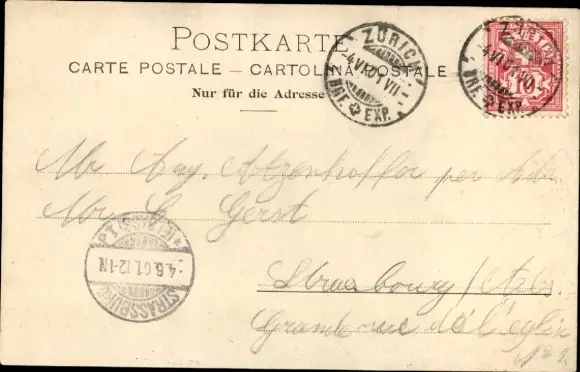 POSTKARTE
CARTE POSTALE – CARTOLINA POSTALE
Nur für die Adresse
ZÜRICH
4.VI.01.VII
BRF. EXP.
ZÜRICH
4.VI.01
BRF. EXP.
10
Mr Aug. Atzenhoffer per Adr.
Mr G. Gerst
Strasbourg / Als.
Grand rue de l'eglise
STRASSBURG
4.6.01.12-1N